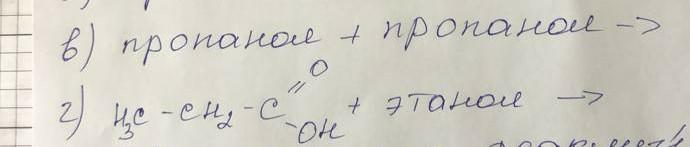 в) пропанол + пропанол ->
г) H3C - CH2 - C =O -OH + этанол ->